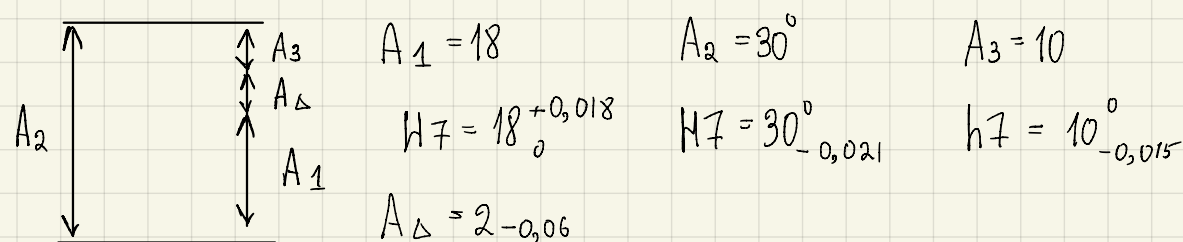 A₃
A_Δ
A₂
A₁
A₁ = 18
H7 = 18 +0,018 0
A_Δ = 2 -0,06
A₂ = 30⁰
H7 = 30 0 -0,021
A₃ = 10
h7 = 10 0 -0,015